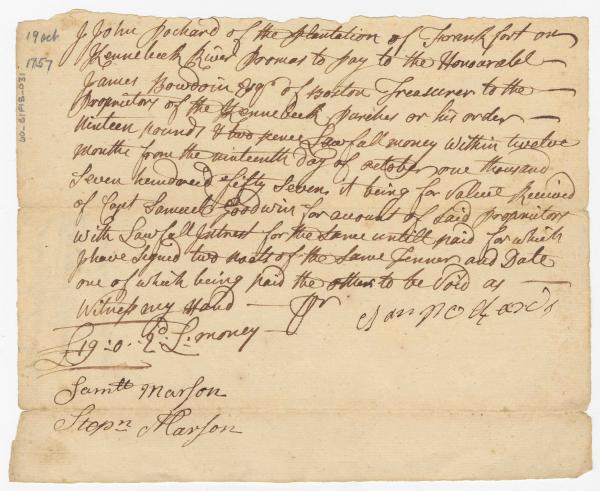 19 oct
1757
I John Pochard of the Plantation of Frankfort on
Kennebeek River Pormas to pay to the Honourabel
James Bowdoin Esqr of Boston Treasurer to the
Propriators of the Kennebeek Purches or his order
ninteen pounds & two pence Lawfall money within twelve
months from the ninteenth day of october one thousand
Seven hundered & fifty Seven it being for value Received
of Capt Samuel Goodwin for acount of Said Propriators
with Lawfall Intrest for the Same untill paid for which
I have Signed two noats of the Same Tenner and Date
one of which being paid the other to be Void as
Witness my Hand
£19:0:2d L: money
Samll Marson
Stepn Marson